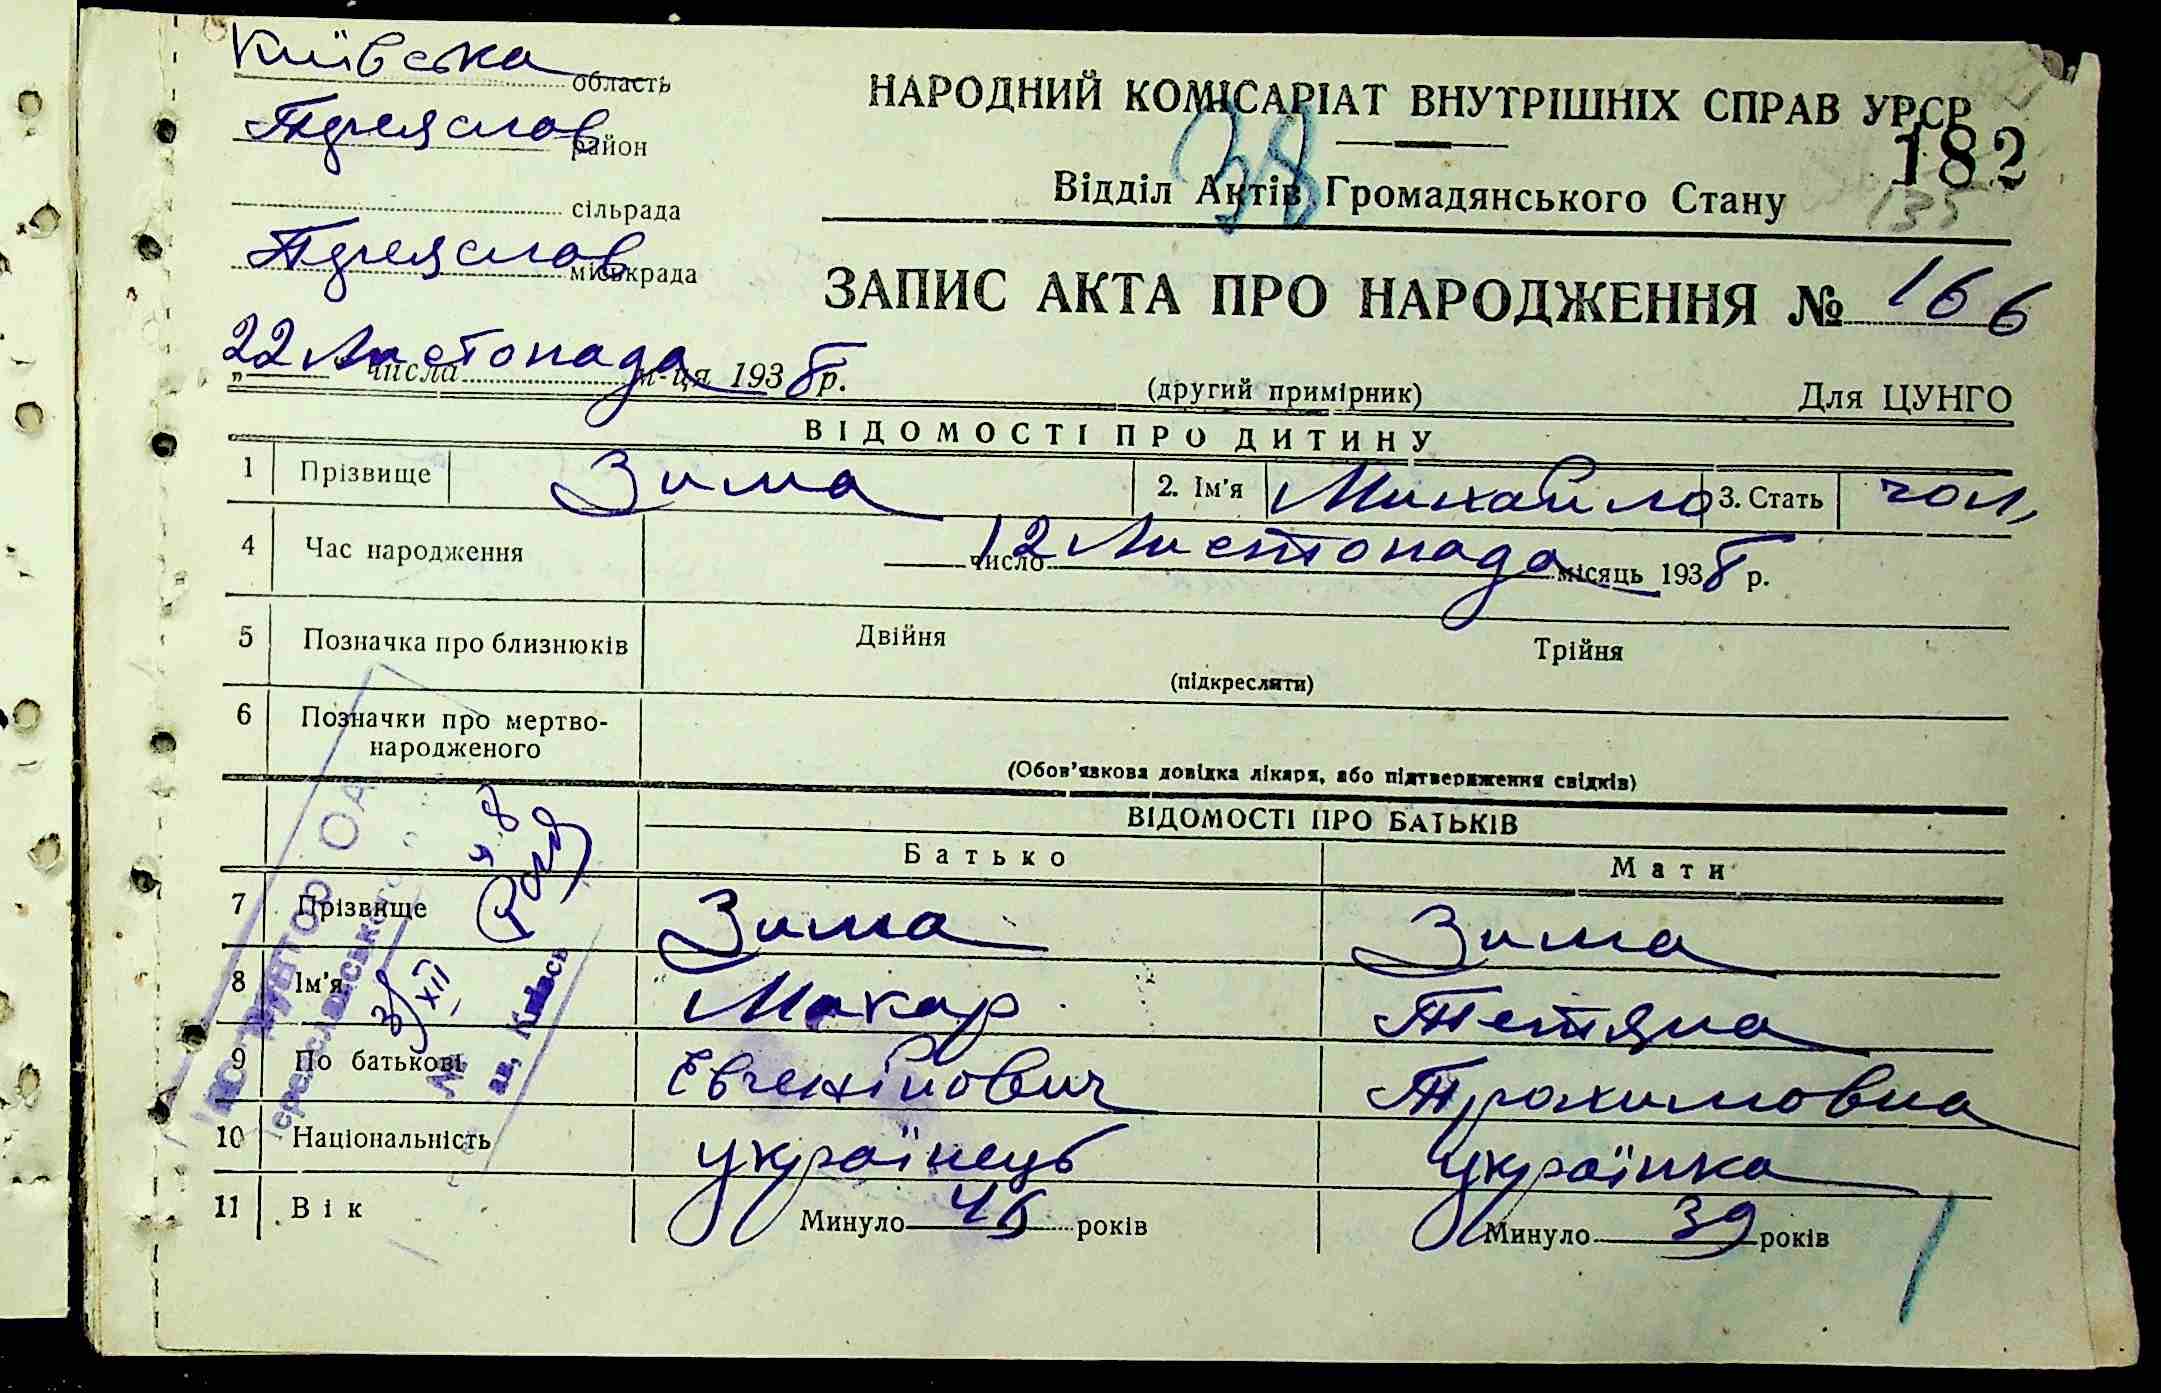 Київська область
НАРОДНИЙ КОМІСАРІАТ ВНУТРІШНІХ СПРАВ УРСР
Переяслав район
182
38
Відділ Актів Громадянського Стану
135
сільрада
Переяслав міськрада
ЗАПИС АКТА ПРО НАРОДЖЕННЯ № 166
„22 числа Листопада м-ця 1938 р.
(другий примірник)
Для ЦУНГО
ВІДОМОСТІ ПРО ДИТИНУ
1 Прізвище Зима 2. Ім'я Михайло 3. Стать чол,
4 Час народження 12 число Листопада місяць 1938 р.
5 Позначка про близнюків Двійня Трійня
(підкресляти)
6 Позначки про мертво-
народженого
(Обов'язкова довідка лікаря, або підтвердження свідків)
ВІДОМОСТІ ПРО БАТЬКІВ
Батько Мати
7 Прізвище Зима Зима
8 Ім'я Макар Тетяна
9 По батькові Евгенійович Трохимовна
10 Національність українець українка
11 Вік Минуло 46 років Минуло 39 років